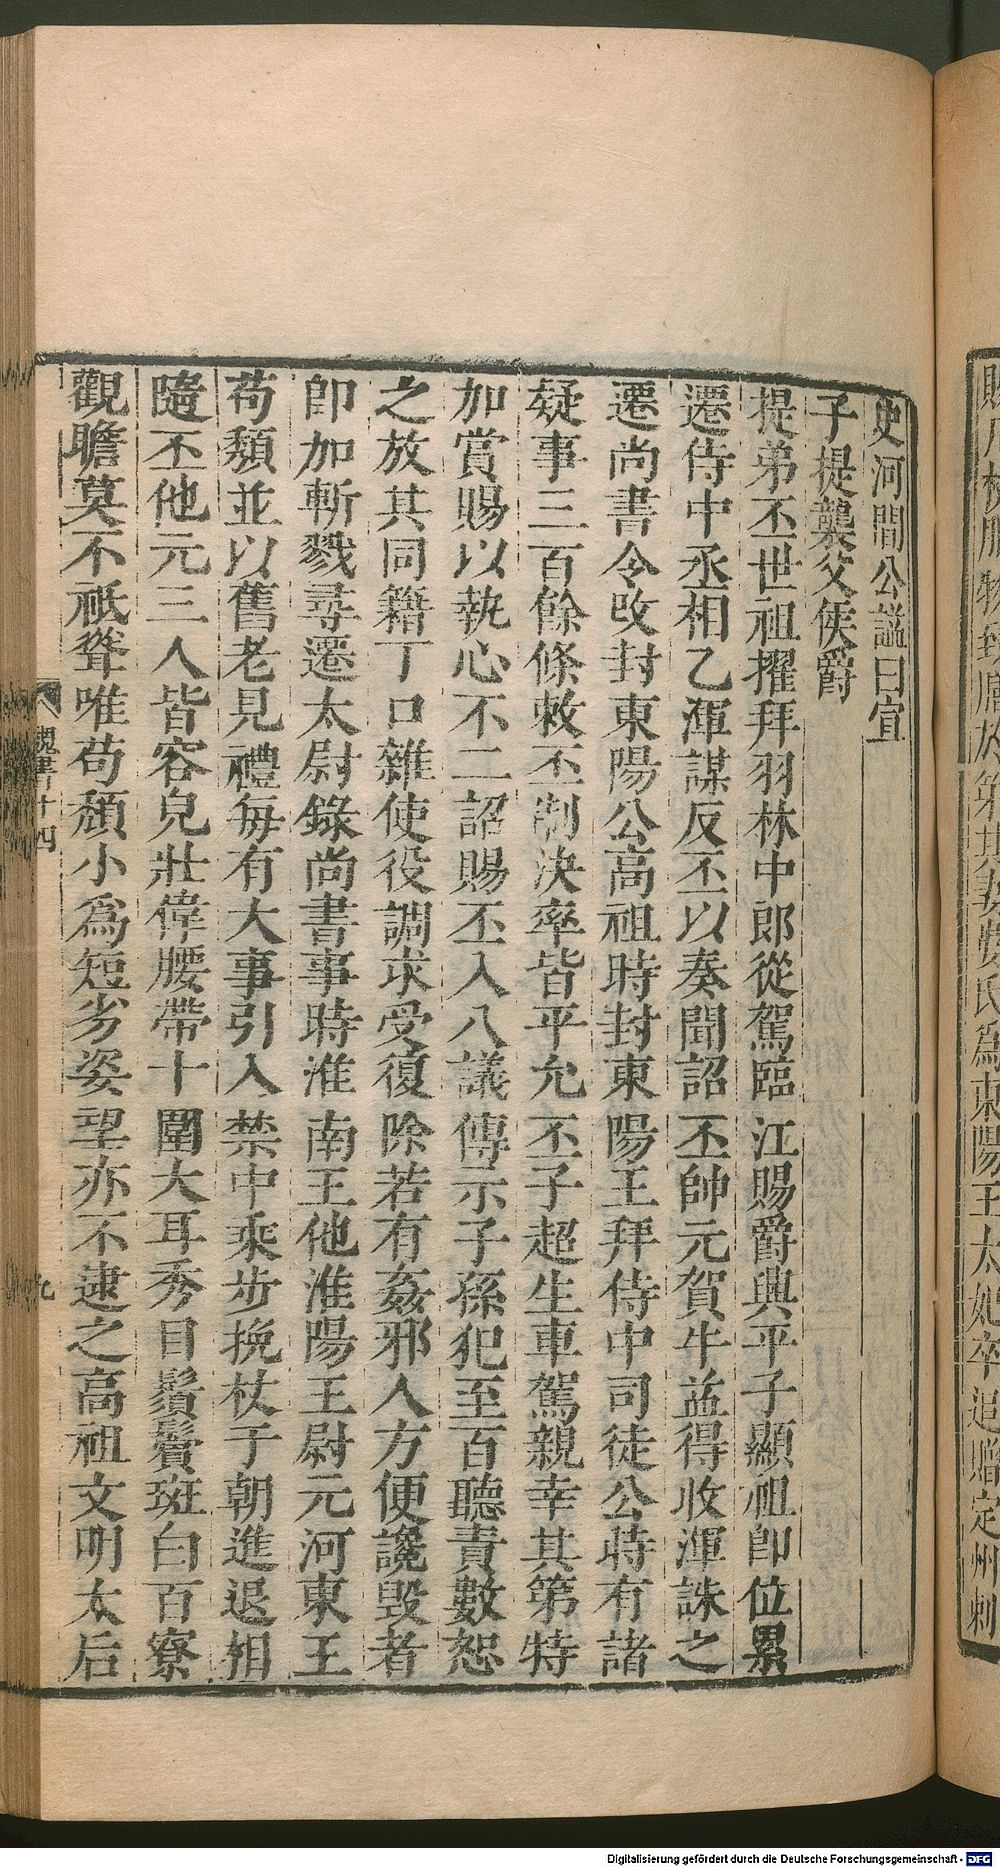 賜
物
席於第其妻婁氏爲東陽王太妃卒追贈定州刺
史河間公諡曰宣
子提襲父侯爵
提弟丕世祖擢拜羽林中郎從駕臨江賜爵興平子顯祖即位累
遷侍中丞相乙渾謀反丕以奏聞詔丕帥元賀牛益得收渾誅之
遷尚書令改封東陽公高祖時封東陽王拜侍中司徒公時有諸
疑事三百餘條敕丕制決率皆平允丕子超生車駕親幸其第特
加賞賜以執心不二詔賜丕入八議傳示子孫犯至百聽責數恕
之放其同籍丁口雜使役調求受復除若有姦邪人方便讒毀者
即加斬戮尋遷太尉錄尚書事時淮南王他淮陽王尉元河東王
苟頹並以舊老見禮每有大事引入禁中乘步挽杖于朝進退相
隨丕他元三人皆容皃壯偉腰帶十圍大耳秀目鬚鬢斑白百寮
觀瞻莫不祇聳唯苟頹小爲短劣姿望亦不逮之高祖文明太后
魏書十四
九
Digitalisierung gefördert durch die Deutsche Forschungsgemeinschaft - DFG